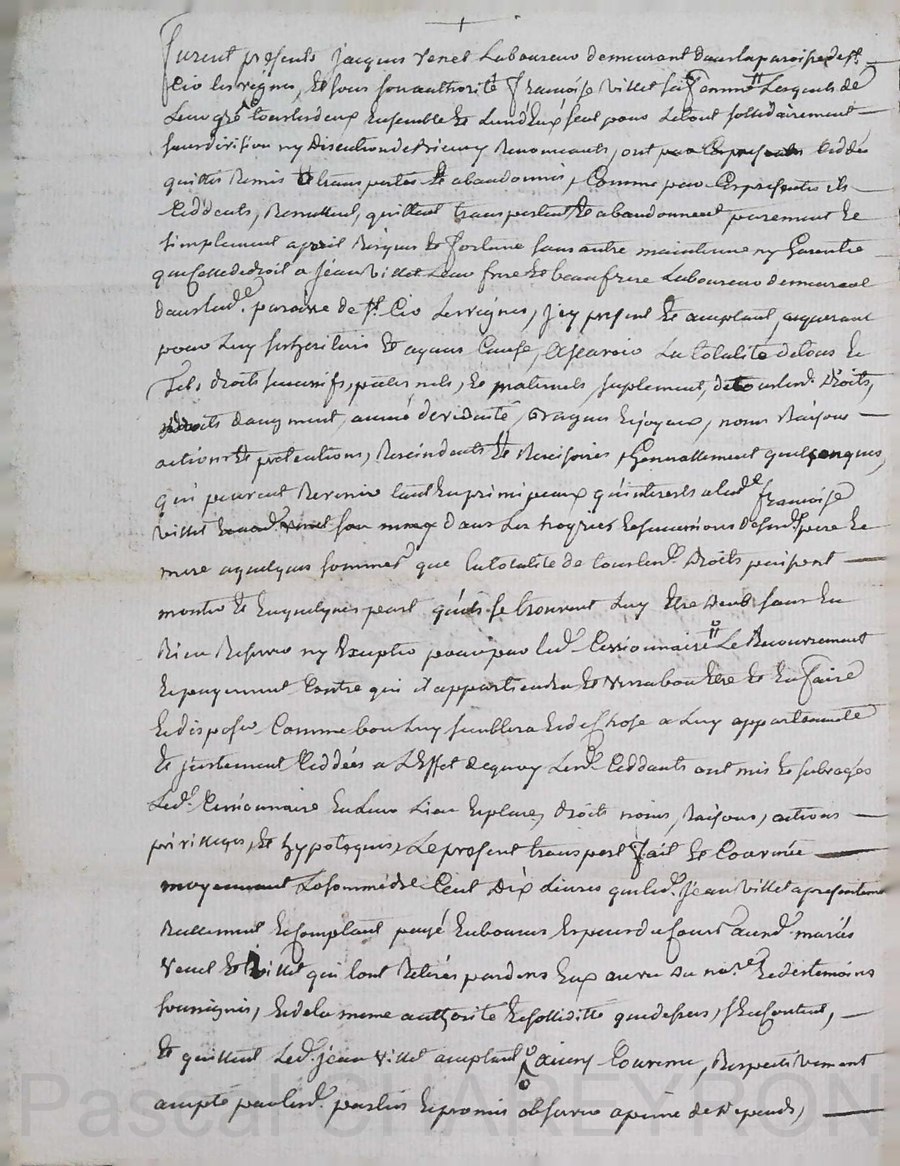 furent présents Jacques Venet Laboureur demeurant dans la paroisse de st
Cio les vignes, Et sous son authorité françoise Villet sa femme Lesquels de
Leur gré tous les deux Ensemble Et L'un d'Eux seul pour Le tout sollidairement
sans division ny Discution de Renonceants, ont par Ces presentes Ceddé
quitté Remis Et transporté Et abandonné, Comme par Ces presentes ils
Ceddent, Remettent, quittent transportent Et abandonnent purement Et
simplement a peril Risques Et fortune sans autre maintenue ny Garentie
que Celle de droit a Jean Villet Leur frere Et beaufrere Laboureur demeurant
dans lad.e paroisse de st Cio Les vignes, Icy present Et acceptant acquerant
pour Luy ses heritiers Et ayans Cause, a scavoir La totalité de tous Et
tels droits successifs, paternels, Et maternels, suplement, de tous lesd. Droits,
droits d'augment, année de viduité, bagues Et joyaux, noms Raisons
actions Et pretentions, Rescindants Et Rescisoires, Generallement quelconques,
qui peuvent Revenir tant En principaux qu'interests a lad.e françoise
Villet dans Les hoyries Et successions de sesd. pere Et
mere a quelques sommes que la totalité de tous lesd. Droits puissent
monter Et En quelques part qu'ils se trouvent Luy Etre deub sans En
Rien Reserver ny Excepter pour par led. Cessionnaire Le Recouvrement
Et payement Contre qui il appartiendra Et verra bon Etre Et En faire
Et disposer Comme bon Luy semblera Et de Chose a Luy appartenante
Et justement Ceddées a L'Effet de quoy Lesd. Ceddants ont mis Et subrogés
Led. Cessionnaire En Leur Lieu Et place, droits noms, Raisons, actions
privileges, Et hypoteques, Le present transport fait Et Convenu
moyennant La somme de Cent Dix Livres que led. Jean Villet a presentement
Reellement Et Comptant payé En bourses Especes du Cours auxd. mariés
Venet Et Villet qui l'ont Retirés pardevers Eux au vu du no.re Et des temoins
soussignés, Et de la meme authorité Et solliditté que dessus, s'En Contentent,
Et quittent Led. jean Villet acceptant ainsy Convenu, Respectivement
accepté par lesd. parties Et promis observer a peine de Depends,
Pascal CHAREYRON